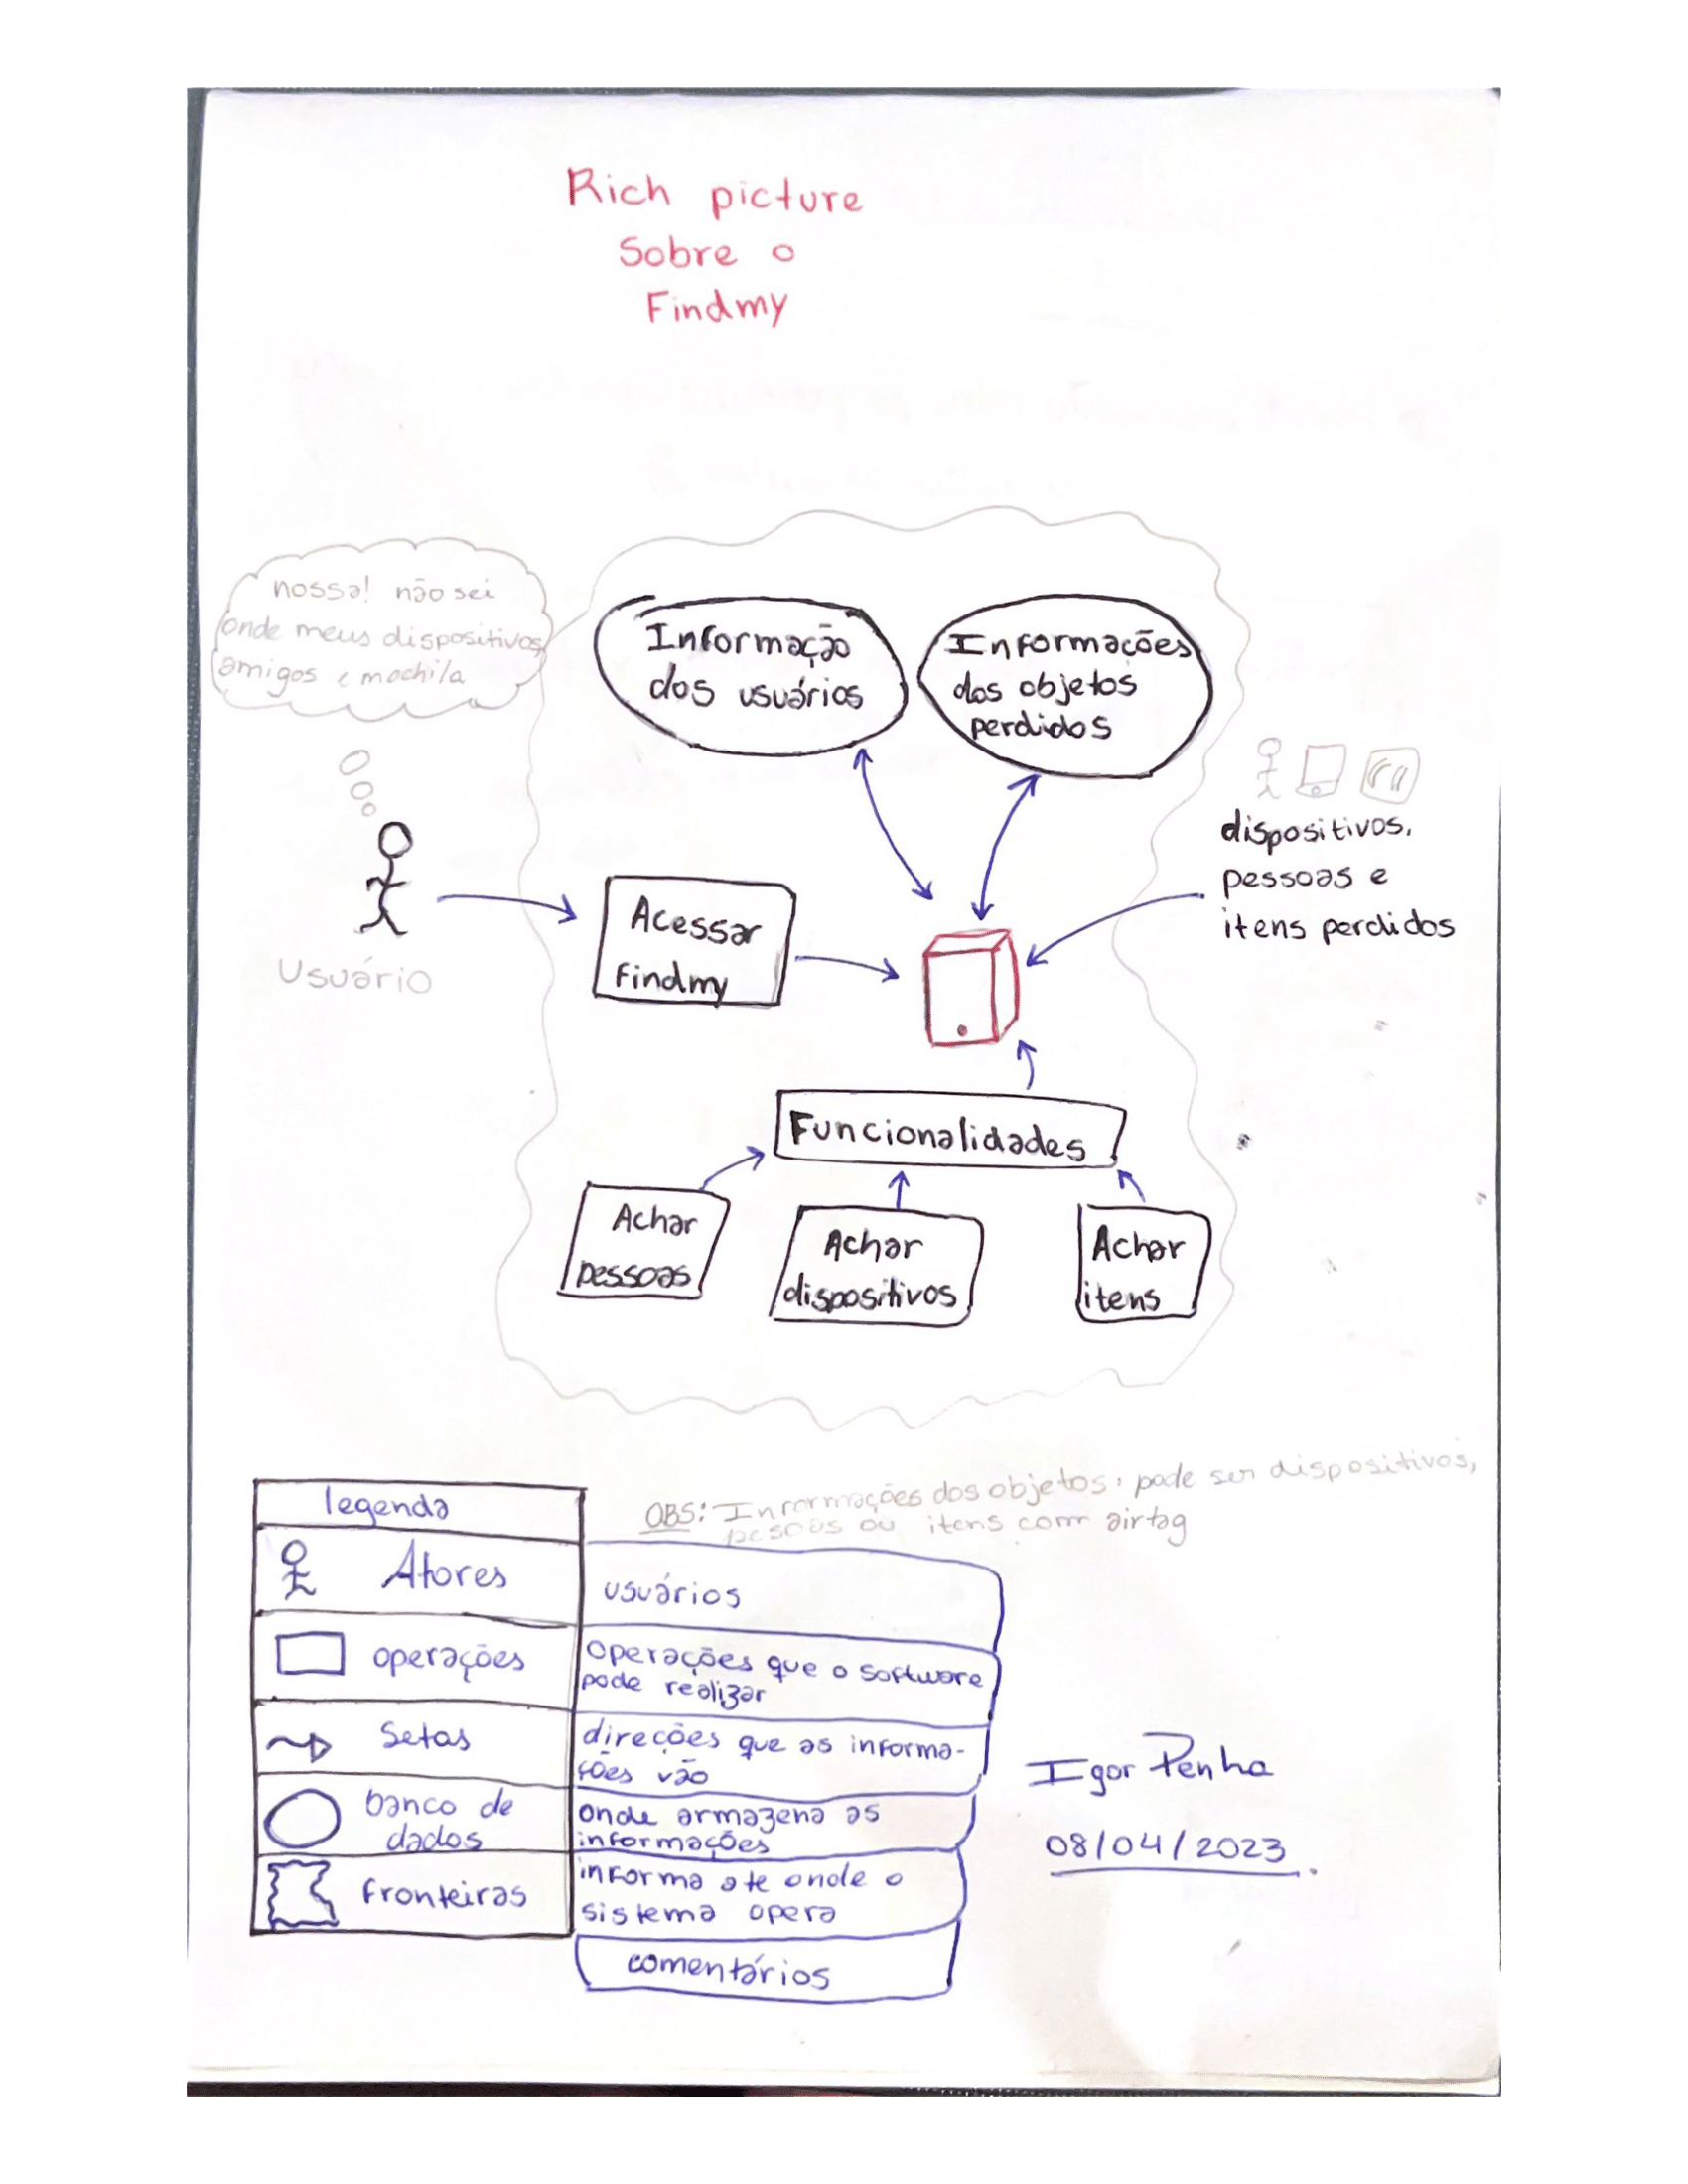 Rich picture
Sobre o
Findmy
nossa! não sei
onde meus dispositivos
amigos e mochila
Usuário
Informação
dos usuários
Informações
dos objetos
perdidos
dispositivos,
pessoas e
itens perdidos
Acessar
Findmy
Funcionalidades
Achar
pessoas
Achar
dispositivos
Achar
itens
OBS: Informações dos objetos, pode ser dispositivos,
pessoas ou itens com airtag
legenda
Atores
usuários
operações
operações que o software
pode realizar
Setas
direções que as informa-
ções vão
banco de
dados
onde armazena as
informações
Fronteiras
informa ate onde o
sistema opera
comentários
Igor Penha
08/04/2023.